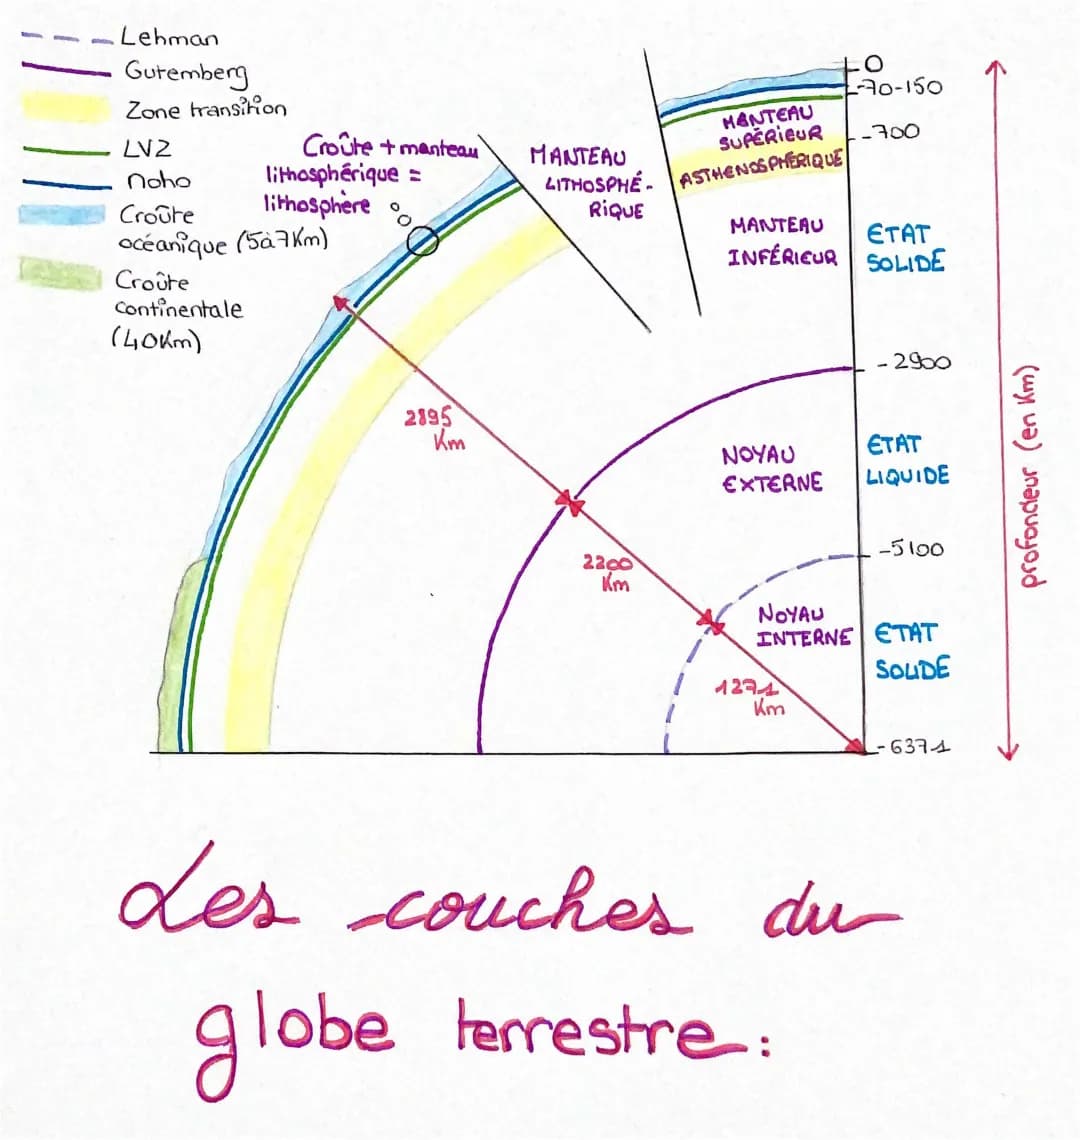 Lehman
Gutemberg
Zone transition
LVZ
Moho
Croûte
océanique (5à7Km)
Croûte
continentale
(40Km)
Croûte + manteau
lithosphérique =
lithosphère
MANTEAU
LITHOSPHÉ-
RIQUE
MANTEAU
SUPÉRIEUR
ASTHENOSPHÉRIQUE
MANTEAU
INFÉRIEUR
0
-70-150
-700
ETAT
SOLIDE
-2900
2895
Km
NOYAU
EXTERNE
ETAT
LIQUIDE
-5100
2200
Km
NOYAU
INTERNE
ETAT
SOLIDE
1271
Km
-6371
profondeur (en Km)
Les couches du
globe terrestre :